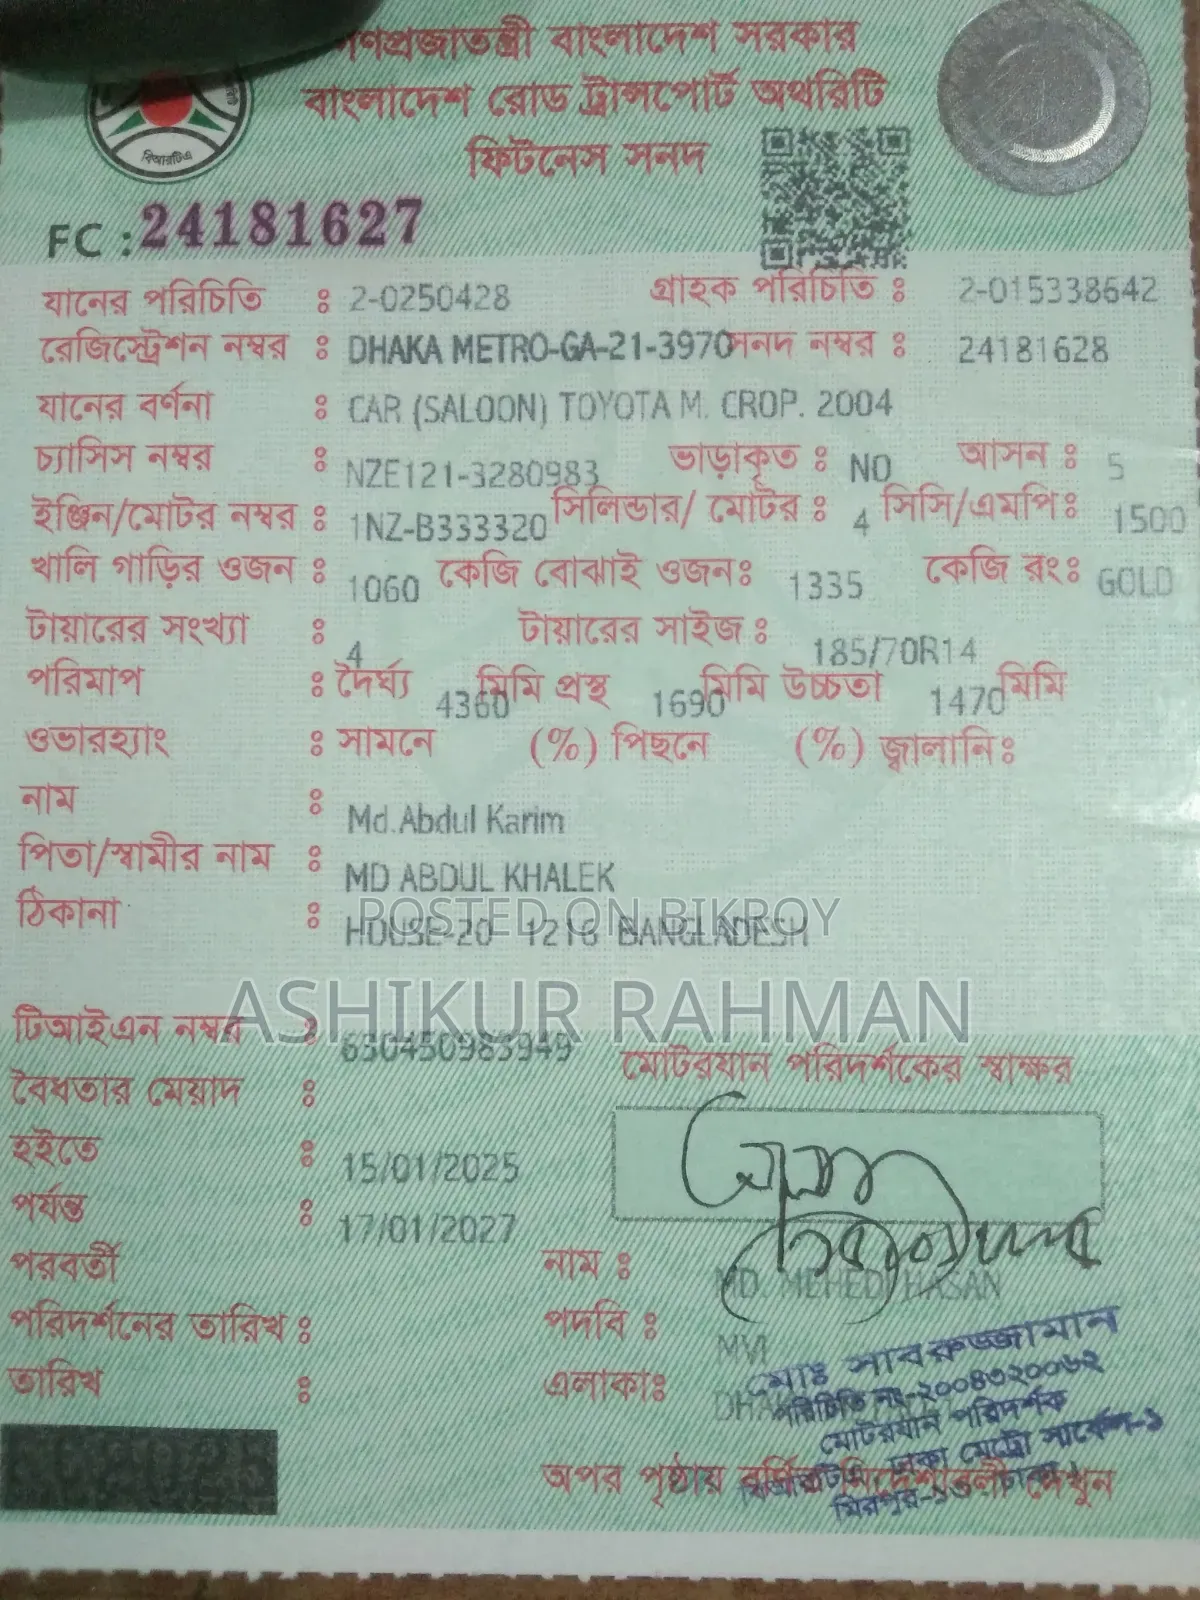 গণপ্রজাতন্ত্রী বাংলাদেশ সরকার
বাংলাদেশ রোড ট্রান্সপোর্ট অথরিটি
ফিটনেস সনদ
বিআরটিএ
FC : 24181627
যানের পরিচিতি : 2-0250428 গ্রাহক পরিচিতি : 2-015338642
রেজিস্ট্রেশন নম্বর : DHAKA METRO-GA-21-3970 সনদ নম্বর : 24181628
যানের বর্ণনা : CAR (SALOON) TOYOTA M. CROP. 2004
চ্যাসিস নম্বর : NZE121-3280983 ভাড়াকৃত : NO আসন : 5
ইঞ্জিন/মোটর নম্বর : 1NZ-B333320 সিলিন্ডার/ মোটর : 4 সিসি/এমপি: 1500
খালি গাড়ির ওজন : 1060 কেজি বোঝাই ওজন: 1335 কেজি রং: GOLD
টায়ারের সংখ্যা : 4 টায়ারের সাইজ : 185/70R14
পরিমাপ : দৈর্ঘ্য 4360 মিমি প্রস্থ 1690 মিমি উচ্চতা 1470 মিমি
ওভারহ্যাং : সামনে (%) পিছনে (%) জ্বালানি:
নাম : Md.Abdul Karim
পিতা/স্বামীর নাম : MD ABDUL KHALEK
ঠিকানা : HOUSE-20 1216 BANGLADESH
POSTED ON BIKROY
ASHIKUR RAHMAN
টিআইএন নম্বর : 650450983949
মোটরযান পরিদর্শকের স্বাক্ষর
বৈধতার মেয়াদ :
হইতে : 15/01/2025
পর্যন্ত : 17/01/2027
পরবর্তী
পরিদর্শনের তারিখ :
তারিখ :
নাম : MD. MEHEDI HASAN
পদবি : MVI
এলাকা:
মোঃ সাবরুজ্জামান
পরিচিতি নং-২০০৪৩২০০৬২
মোটরযান পরিদর্শক
ঢাকা মেট্রো সার্কেল-১
মিরপুর-১৩
অপর পৃষ্ঠায় বর্ণিত নির্দেশাবলী দেখুন